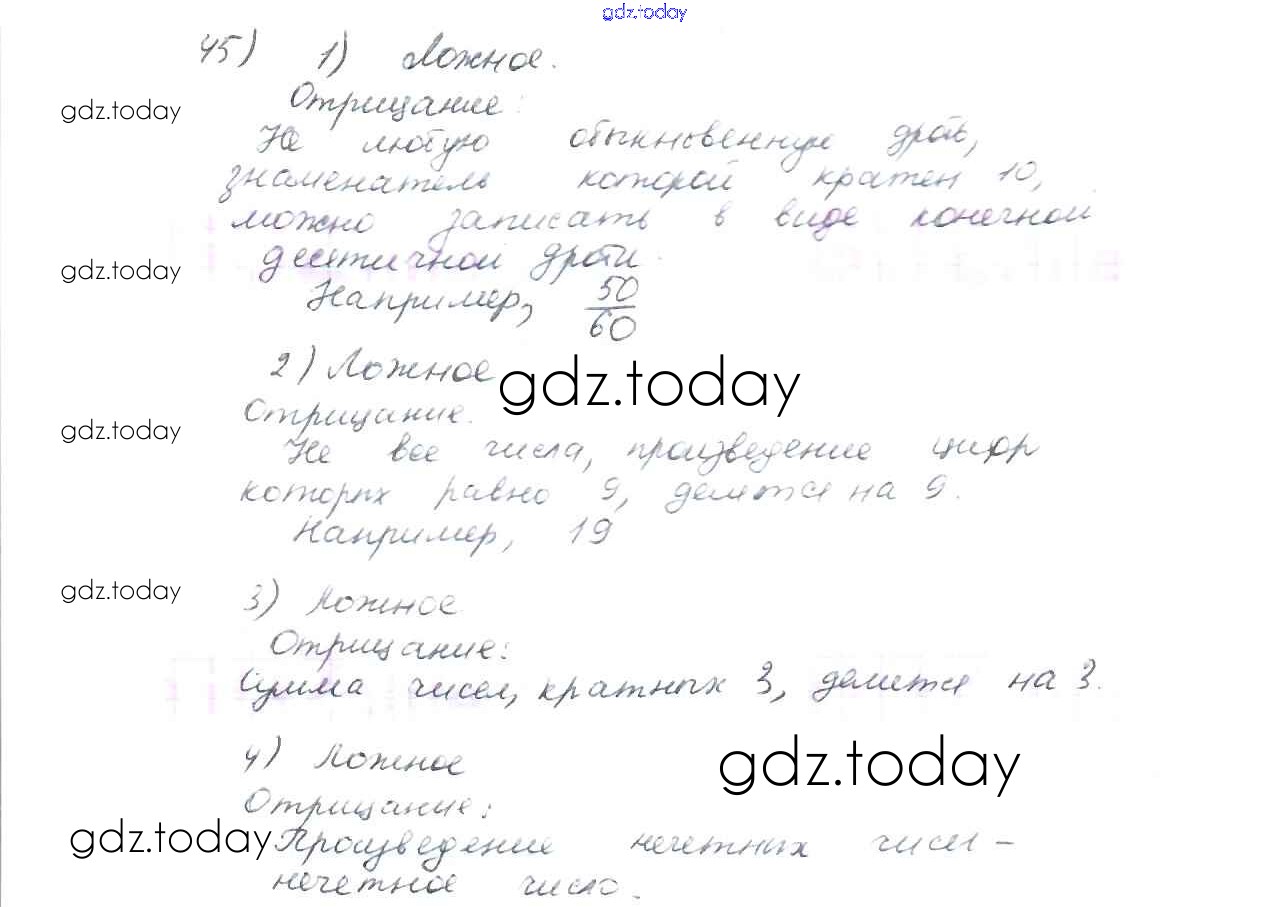 gdz.today
45) 1) Ложное.
gdz.today
Отрицание:
Не любую обыкновенную дробь,
знаменатель которой кратен 10,
можно записать в виде конечной
gdz.today
десятичной дроби.
Например, 50/60
2) Ложное
gdz.today
Отрицание.
gdz.today
Не все числа, произведение цифр
которых равно 9, делятся на 9.
Например, 19
gdz.today
3) Ложное
Отрицание:
Сумма чисел, кратных 3, делится на 3.
4) Ложное
gdz.today
Отрицание:
gdz.today
Произведение нечетных чисел –
нечетное число.